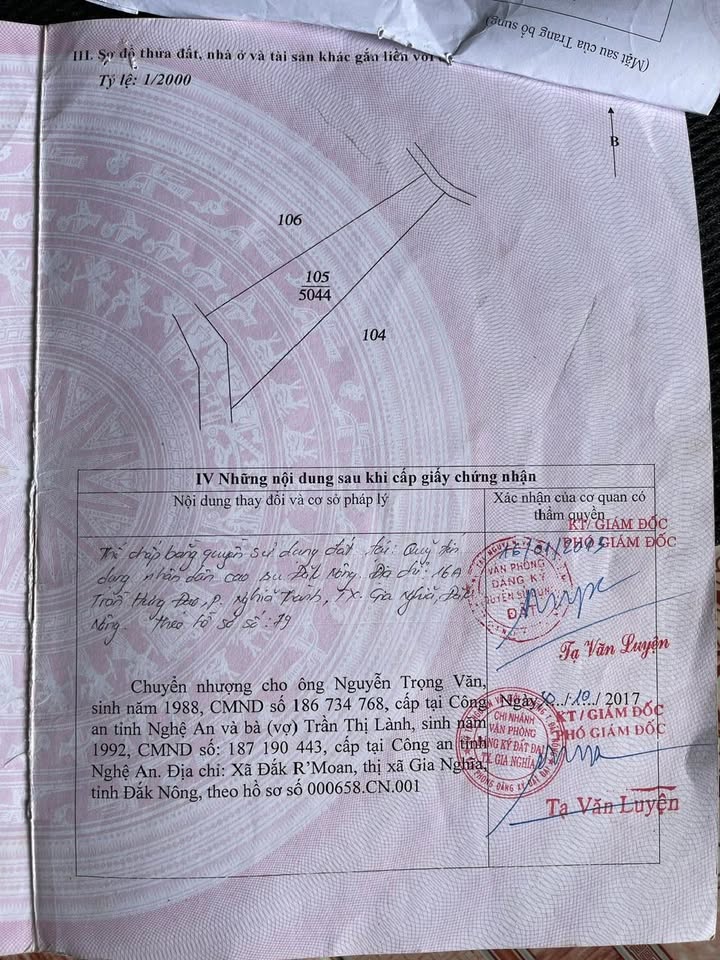 (Mặt sau của Trang bổ sung)
III. Sơ đồ thửa đất, nhà ở và tài sản khác gắn liền với
Tỷ lệ: 1/2000
B
106
105
5044
104
IV Những nội dung sau khi cấp giấy chứng nhận
Nội dung thay đổi và cơ sở pháp lý
Xác nhận của cơ quan có
thẩm quyền
Thế chấp bằng quyền sử dụng đất tại: Quỹ tín
dụng nhân dân cao su Đăk Nông. Địa chỉ: 16A
Trần Hưng Đạo, P. Nghĩa Thành, TX. Gia Nghĩa, Đăk
Nông. Theo hồ sơ số: 79
KT/ GIÁM ĐỐC
PHÓ GIÁM ĐỐC
VĂN PHÒNG
ĐĂNG KÝ
QUYỀN SỬ DỤNG
ĐẤT
Tạ Văn Luyện
Chuyển nhượng cho ông Nguyễn Trọng Văn,
sinh năm 1988, CMND số 186 734 768, cấp tại Công
an tỉnh Nghệ An và bà (vợ) Trần Thị Lành, sinh năm
1992, CMND số: 187 190 443, cấp tại Công an tỉnh
Nghệ An. Địa chỉ: Xã Đắk R'Moan, thị xã Gia Nghĩa,
tỉnh Đắk Nông, theo hồ sơ số 000658.CN.001
Ngày /10/ 2017
KT / GIÁM ĐỐC
PHÓ GIÁM ĐỐC
CHI NHÁNH
VĂN PHÒNG
ĐĂNG KÝ ĐẤT ĐAI
TX. GIA NGHĨA
Tạ Văn Luyện